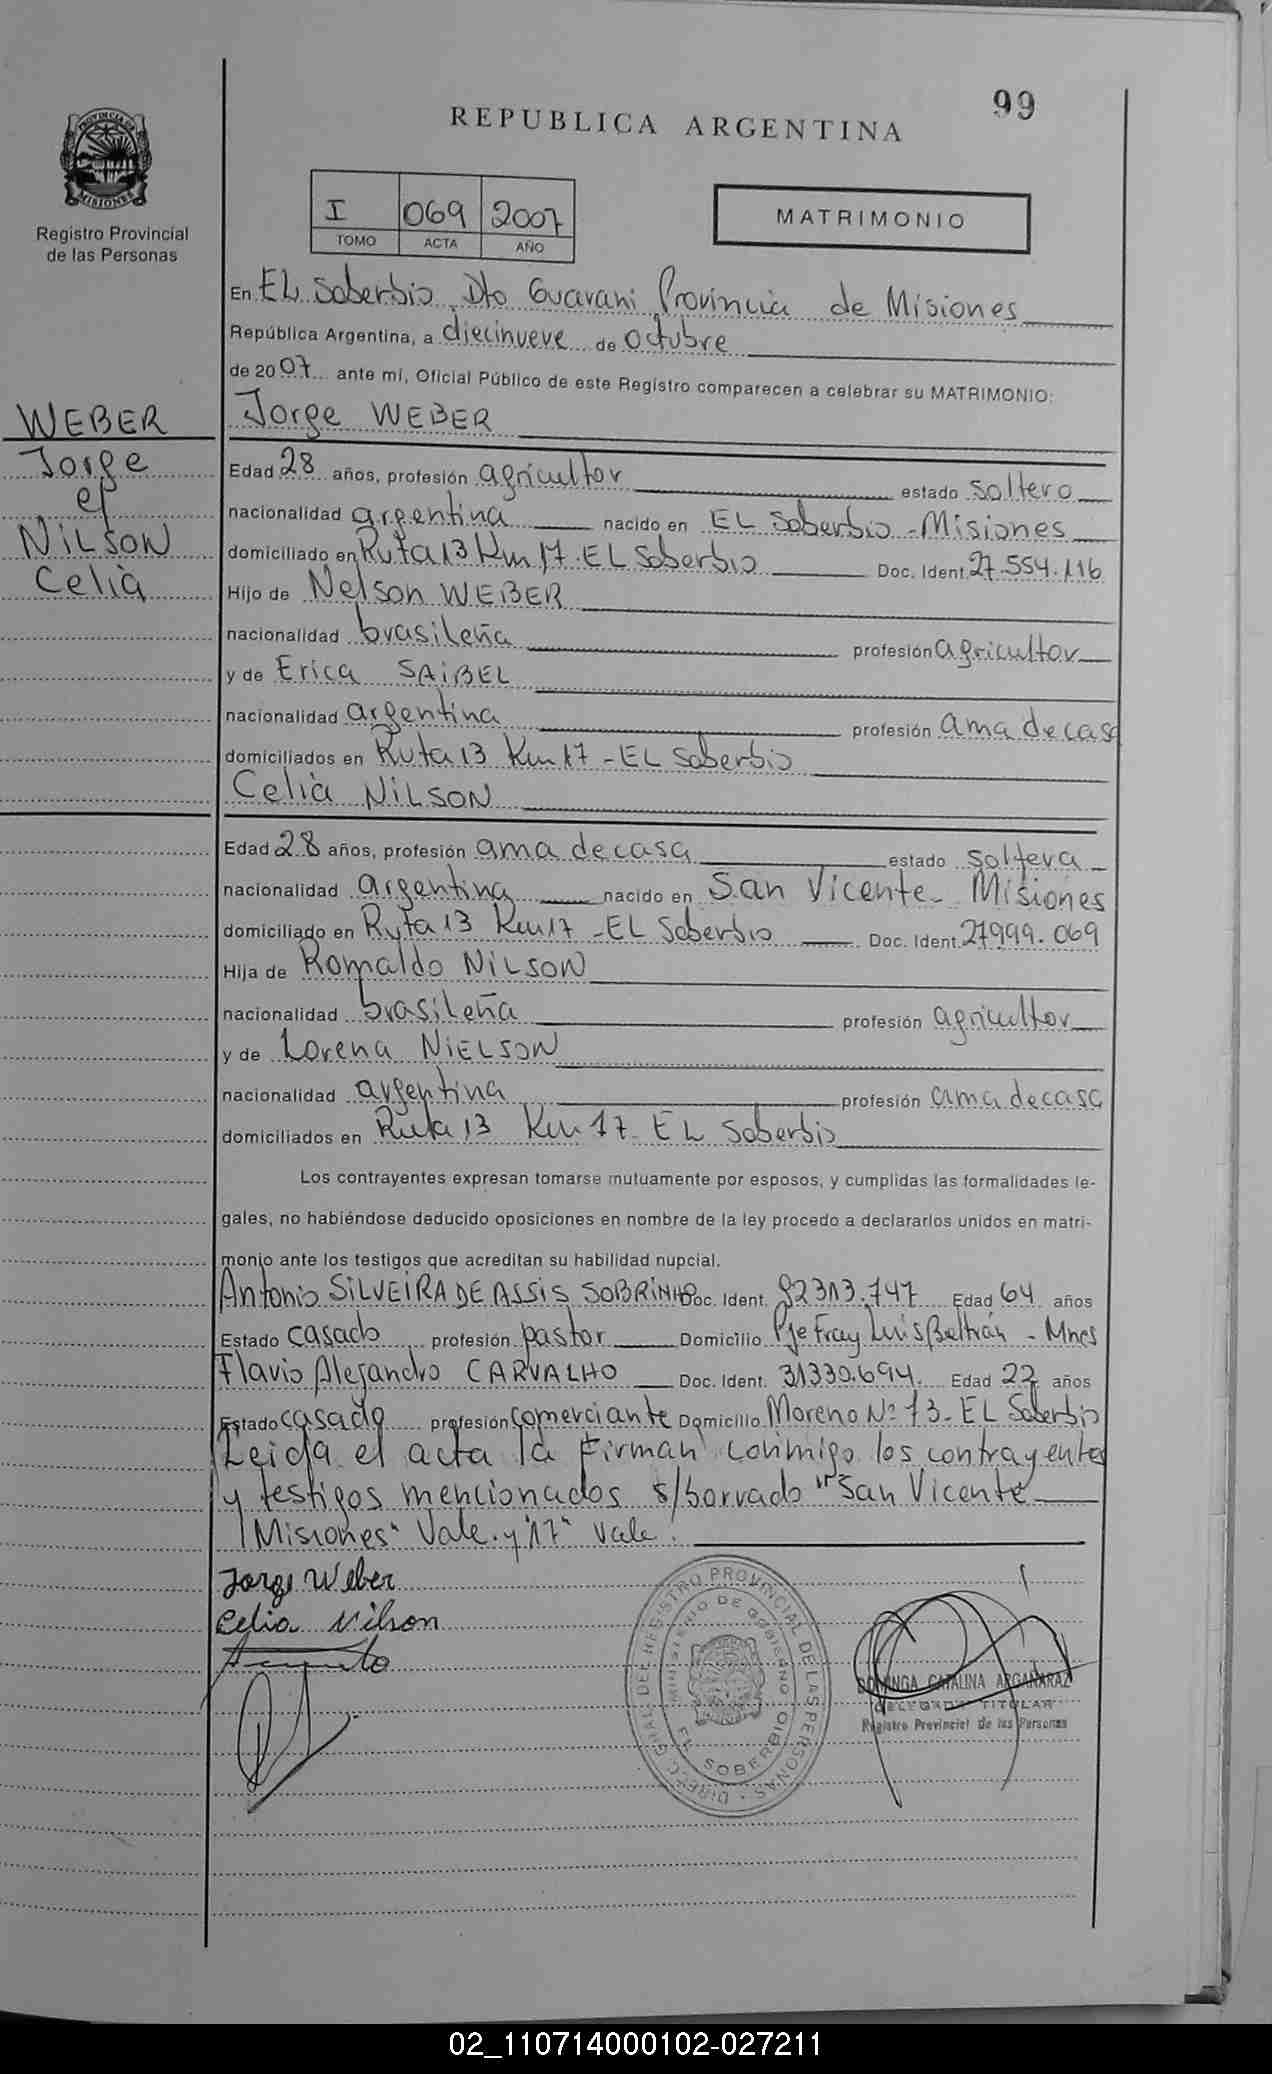 99
REPUBLICA ARGENTINA
PROVINCIA DE MISIONES
Registro Provincial
de las Personas
I 069 2007
TOMO ACTA AÑO
MATRIMONIO
En EL Soberbio Dto Guarani Provincia de Misiones
República Argentina, a diecinueve de octubre
de 2007 ante mí, Oficial Público de este Registro comparecen a celebrar su MATRIMONIO:
WEBER
Jorge
et
NILSON
Celia
Jorge WEBER
Edad 28 años, profesión agricultor estado soltero
nacionalidad argentina nacido en EL Soberbio - Misiones
domiciliado en Ruta 13 Km 17 - EL Soberbio Doc. Ident. 27.554.116
Hijo de Nelson WEBER
nacionalidad brasileña profesión agricultor
y de Erica SAIBEL
nacionalidad argentina profesión ama de casa
domiciliados en Ruta 13 Km 17 - EL Soberbio
Celia NILSON
Edad 28 años, profesión ama de casa estado soltera
nacionalidad argentina nacido en San Vicente - Misiones
domiciliado en Ruta 13 Km 17 - EL Soberbio Doc. Ident. 27999.069
Hija de Romaldo NILSON
nacionalidad brasileña profesión agricultor
y de Lorena NIELSON
nacionalidad argentina profesión ama de casa
domiciliados en Ruta 13 Km 17 - EL Soberbio
Los contrayentes expresan tomarse mutuamente por esposos, y cumplidas las formalidades le-
gales, no habiéndose deducido oposiciones en nombre de la ley procedo a declararlos unidos en matri-
monio ante los testigos que acreditan su habilidad nupcial.
Antonio SILVEIRA DE ASSIS SOBRINHO Doc. Ident. 92313.747 Edad 64 años
Estado casado profesión pastor Domicilio Pje Fray Luis Beltrán - Mnes
Flavio Alejandro CARVALHO Doc. Ident. 31330.694 Edad 22 años
Estado casado profesión comerciante Domicilio Moreno Nº 13 - EL Soberbio
Leida el acta la firman conmigo los contrayentes
y testigos mencionados s/borrado "San Vicente
Misiones" Vale. y "17" vale.
Jorge Weber
Celia Nilson
DIREC. GRAL DEL REGISTRO PROVINCIAL DE LAS PERSONAS
MINISTERIO DE GOBIERNO
EL SOBERBIO
DOMINGA CATALINA ARGAÑARAZ
DELEGADA TITULAR
Registro Provincial de las Personas
02_110714000102-027211